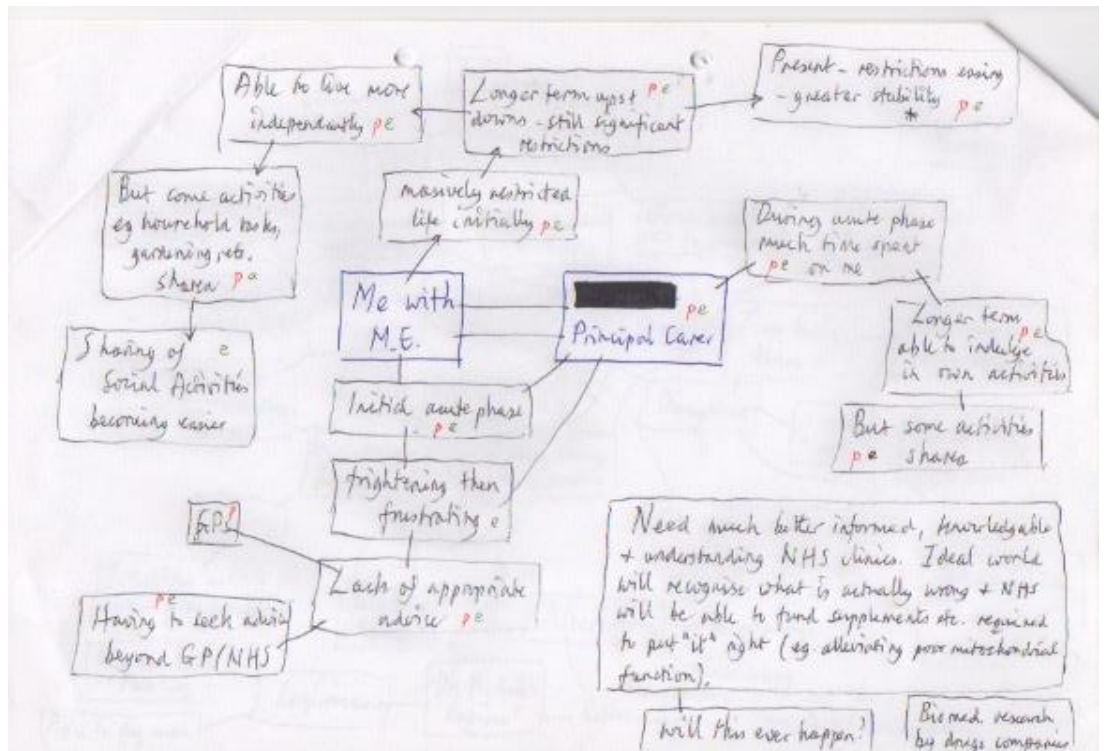 Able to live more
independantly pe
Longer term ups + pe
downs - still significant
restrictions
Present - restrictions easing
- greater stability pe
*
But some activities
eg household tasks,
gardening etc.
shared pe
massively restricted
life initially pe
During acute phase
much time spent
pe on me
Me with
M.E.
pe
Principal Carer
Longer term pe
able to indulge
in own activities
Sharing of e
Social Activities
becoming easier
Initial acute phase
pe
But some activities
pe shared
frightening then
frustrating e
GPs p
Lack of appropriate
advice pe
pe
Having to seek advice
beyond GP/NHS
Need much better informed, knowledgable
+ understanding NHS clinics. Ideal world
will recognise what is actually wrong + NHS
will be able to fund supplements etc. required
to put "it" right (eg alleviating poor mitochondrial
function).
Will this ever happen?
Biomed research
by drugs companies